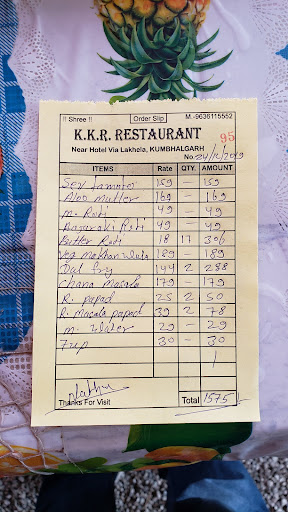 !! Shree !! Order Slip M.-9636115552
K.K.R. RESTAURANT
95
Near Hotel Via Lakhela, KUMBHALGARH
No. 24/12/2019
ITEMS Rate QTY. AMOUNT
Sev tamato 159 — 159
Aloo mutter 169 — 169
M. Roti 49 — 49
Bajaraki Roti 49 — 49
Butter Roti 18 17 306
Veg makhanwala 189 — 189
Dal fry 144 2 288
Chana masala 179 — 179
R. papad 25 2 50
R. Masala papad 39 2 78
M. Water 29 — 29
7up 30 — 30
Thanks For Visit Total 1575